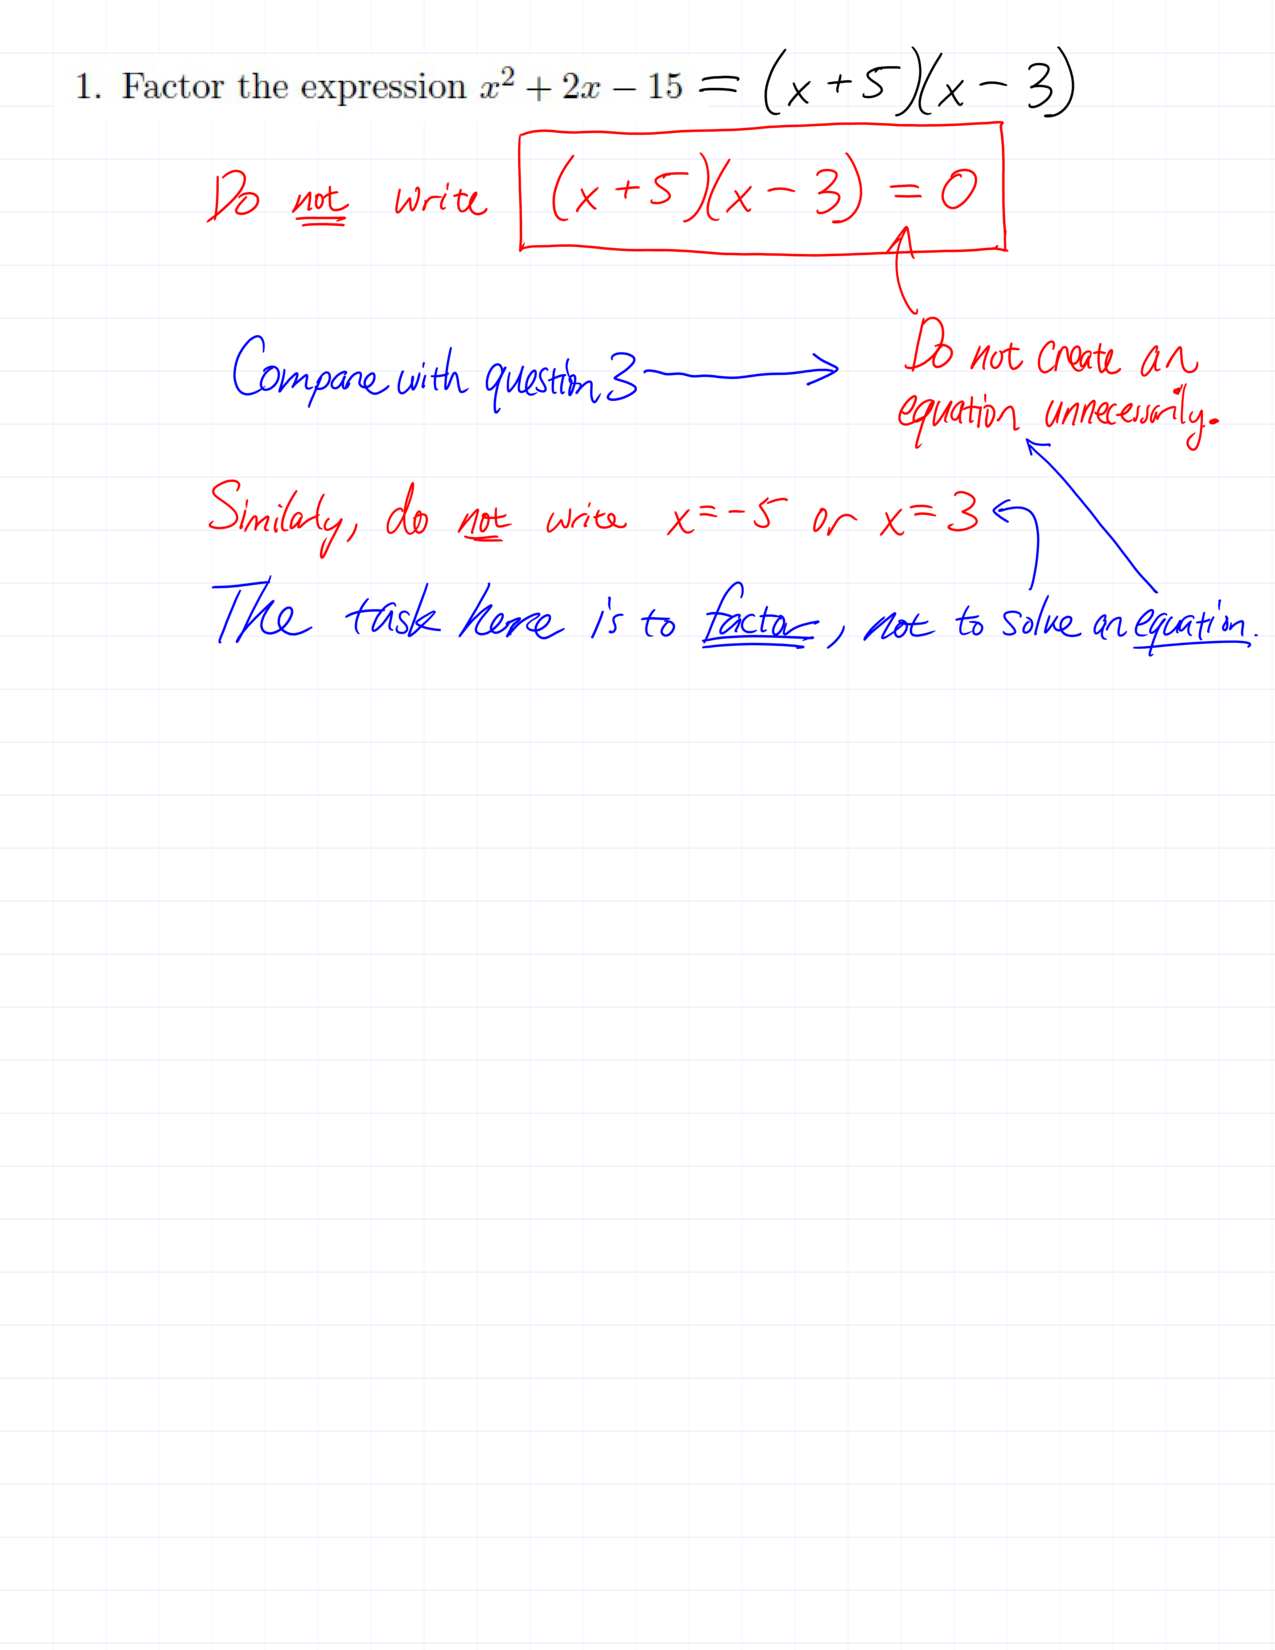 1. Factor the expression x² + 2x − 15 = (x+5)(x−3)
Do not write (x+5)(x−3) = 0
Compare with question 3
Do not create an
equation unnecessarily.
Similarly, do not write x=-5 or x=3
The task here is to factor, not to solve an equation.